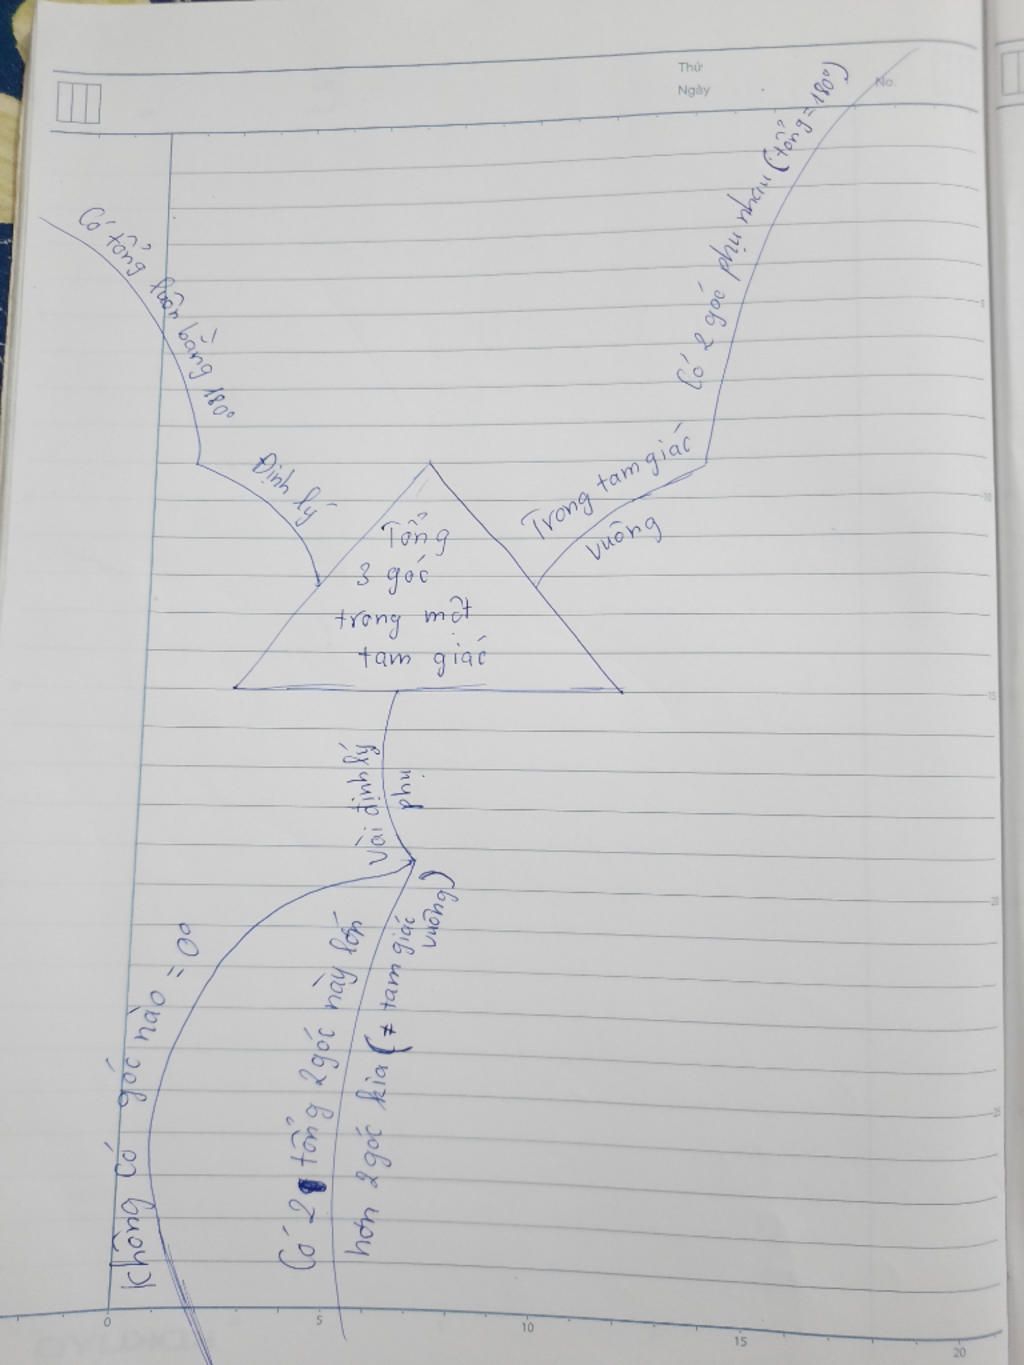 Thứ
Ngày
No.
Có tổng luôn bằng 180°
Định lý
Có 2 góc phụ nhau (tổng = 180°)
Trong tam giác
vuông
Tổng
3 góc
trong một
tam giác
Vài định lý
phụ
Không có góc nào = 0°
Có 2 tổng 2 góc này lớn
hơn 2 góc kia (≠ tam giác
vuông)
5
10
15
20
25
0
5
10
15
20